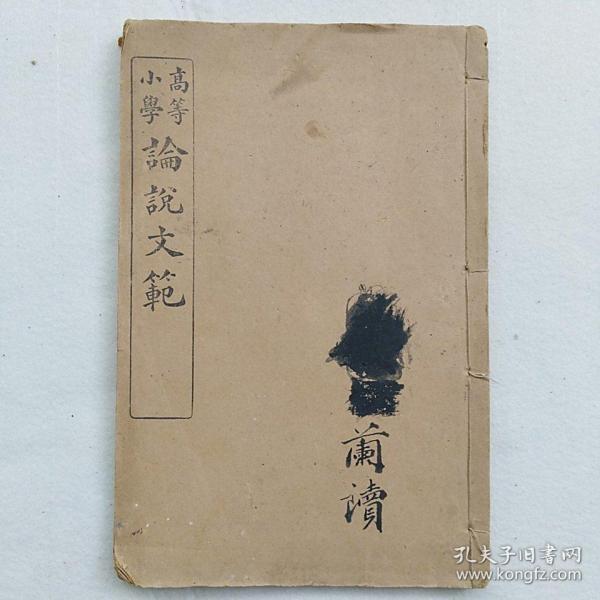 高等
小學
論說文範
蘭讀
孔夫子旧书网
www.kongfz.com